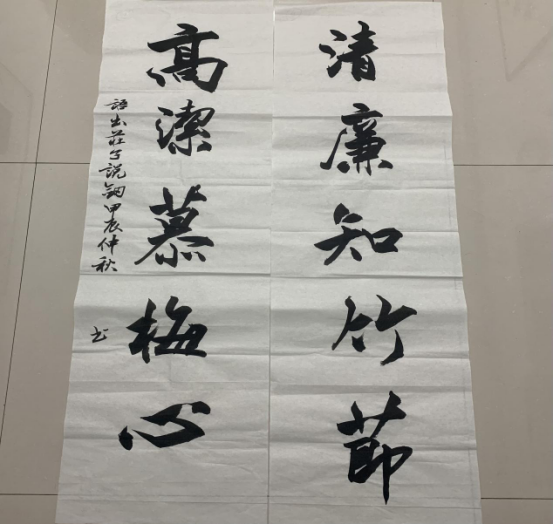 清廉知竹節
高潔慕梅心
語出莊子説劍甲辰仲秋
書